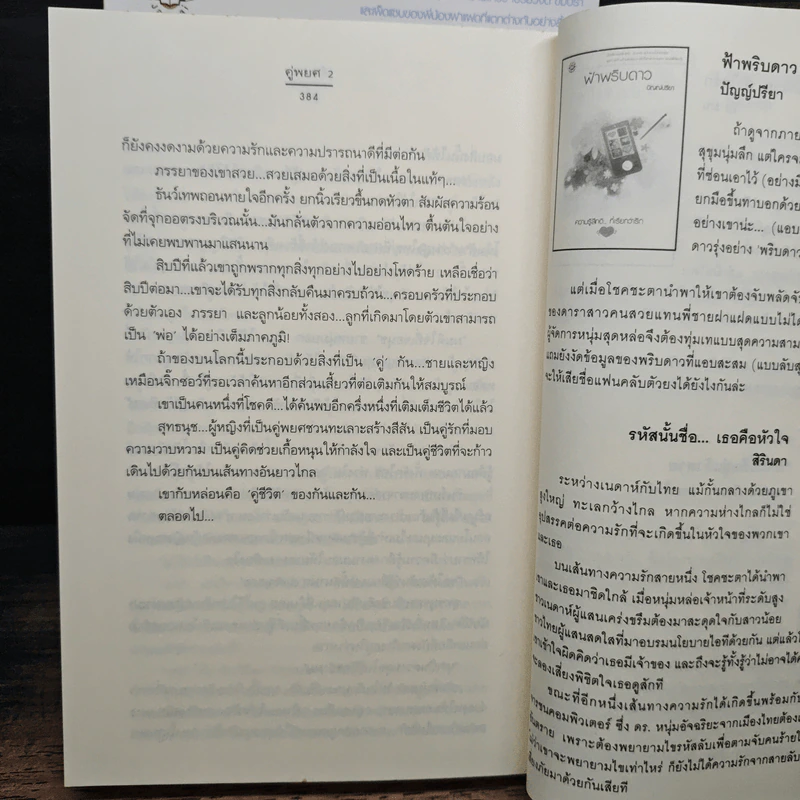 และเผ็ดแซบของพี่น้องฝาแฝดที่แตกต่างกันอย่าง
คู่พยศ 2
384
ก็ยังคงงดงามด้วยความรักและความปรารถนาดีที่มีต่อกัน
ภรรยาของเขาสวย...สวยเสมอด้วยสิ่งที่เป็นเนื้อในแท้ๆ...
ธันว์เทพถอนหายใจอีกครั้ง ยกนิ้วเรียวขึ้นกดหัวตา สัมผัสความร้อน
จัดที่จุกออตรงบริเวณนั้น...มันกลั่นตัวจากความอ่อนไหว ตื้นตันใจอย่าง
ที่ไม่เคยพบพานมาแสนนาน
สิบปีที่แล้วเขาถูกพรากทุกสิ่งทุกอย่างไปอย่างโหดร้าย เหลือเชื่อว่า
สิบปีต่อมา...เขาจะได้รับทุกสิ่งกลับคืนมาครบถ้วน...ครอบครัวที่ประกอบ
ด้วยตัวเอง ภรรยา และลูกน้อยทั้งสอง...ลูกที่เกิดมาโดยตัวเขาสามารถ
เป็น ‘พ่อ’ ได้อย่างเต็มภาคภูมิ!
ถ้าของบนโลกนี้ประกอบด้วยสิ่งที่เป็น ‘คู่’ กัน...ชายและหญิง
เหมือนจิ๊กซอว์ที่รอเวลาค้นหาอีกส่วนเสี้ยวที่ต่อเติมกันให้สมบูรณ์
เขาเป็นคนหนึ่งที่โชคดี...ได้ค้นพบอีกครึ่งหนึ่งที่เติมเต็มชีวิตได้แล้ว
สุทธนุช...ผู้หญิงที่เป็นคู่พยศชวนทะเลาะสร้างสีสัน เป็นคู่รักที่มอบ
ความวาบหวาม เป็นคู่คิดช่วยเกื้อหนุนให้กำลังใจ และเป็นคู่ชีวิตที่จะก้าว
เดินไปด้วยกันบนเส้นทางอันยาวไกล
เขากับหล่อนคือ ‘คู่ชีวิต’ ของกันและกัน...
ตลอดไป...
ฟ้าพริบดาว
ปัญญ์ปรียา
ฟ้าพริบดาว
ปัญญ์ปรียา
ถ้าดูจากภาย
สุขุมนุ่มลึก แต่ใครจะ
ที่ซ่อนเอาไว้ (อย่างมิ
ยกมือขึ้นทาบอกด้วย
อย่างเขาน่ะ... (แอบ
ดาวรุ่งอย่าง ‘พริบดาว
แต่เมื่อโชคชะตานำพาให้เขาต้องจับพลัดจั
ของดาราสาวคนสวยแทนพี่ชายฝาแฝดแบบไม่ได้
ผู้จัดการหนุ่มสุดหล่อจึงต้องทุ่มเทแบบสุดความสาม
แถมยังงัดข้อมูลของพริบดาวที่แอบสะสม (แบบลับสุ
จะให้เสียชื่อแฟนคลับตัวยงได้ยังไงกันล่ะ
รหัสนั้นชื่อ... เธอคือหัวใจ
สิรินดา
ระหว่างเนดาห์กับไทย แม้กั้นกลางด้วยภูเขา
สูงใหญ่ ทะเลกว้างไกล หากความห่างไกลก็ไม่ใช่
อุปสรรคต่อความรักที่จะเกิดขึ้นในหัวใจของพวกเขา
และเธอ
บนเส้นทางความรักสายหนึ่ง โชคชะตาได้นำพา
เขาและเธอมาชิดใกล้ เมื่อหนุ่มหล่อเจ้าหน้าที่ระดับสูง
ชาวเนดาห์ผู้แสนเคร่งขรึมต้องมาสะดุดใจกับสาวน้อย
ชาวไทยผู้แสนสดใสที่มาอบรมนโยบายไอทีด้วยกัน แต่แล้วใ
เขาเข้าใจผิดคิดว่าเธอมีเจ้าของ และถึงจะรู้ทั้งรู้ว่าไม่อาจได้ค
จะลองเสี่ยงพิชิตใจเธอดูสักที
ขณะที่อีกหนึ่งเส้นทางความรักได้เกิดขึ้นพร้อมกับ
คอมพิวเตอร์ ซึ่ง ดร. หนุ่มอัจฉริยะจากเมืองไทยต้อง
อันตราย เพราะต้องพยายามไขรหัสลับเพื่อตามจับคนร้าย
ว่าเขาจะพยายามไขเท่าไหร่ ก็ยังไม่ได้ความรักจากสายลับ
ภัยมาด้วยกันเสียที